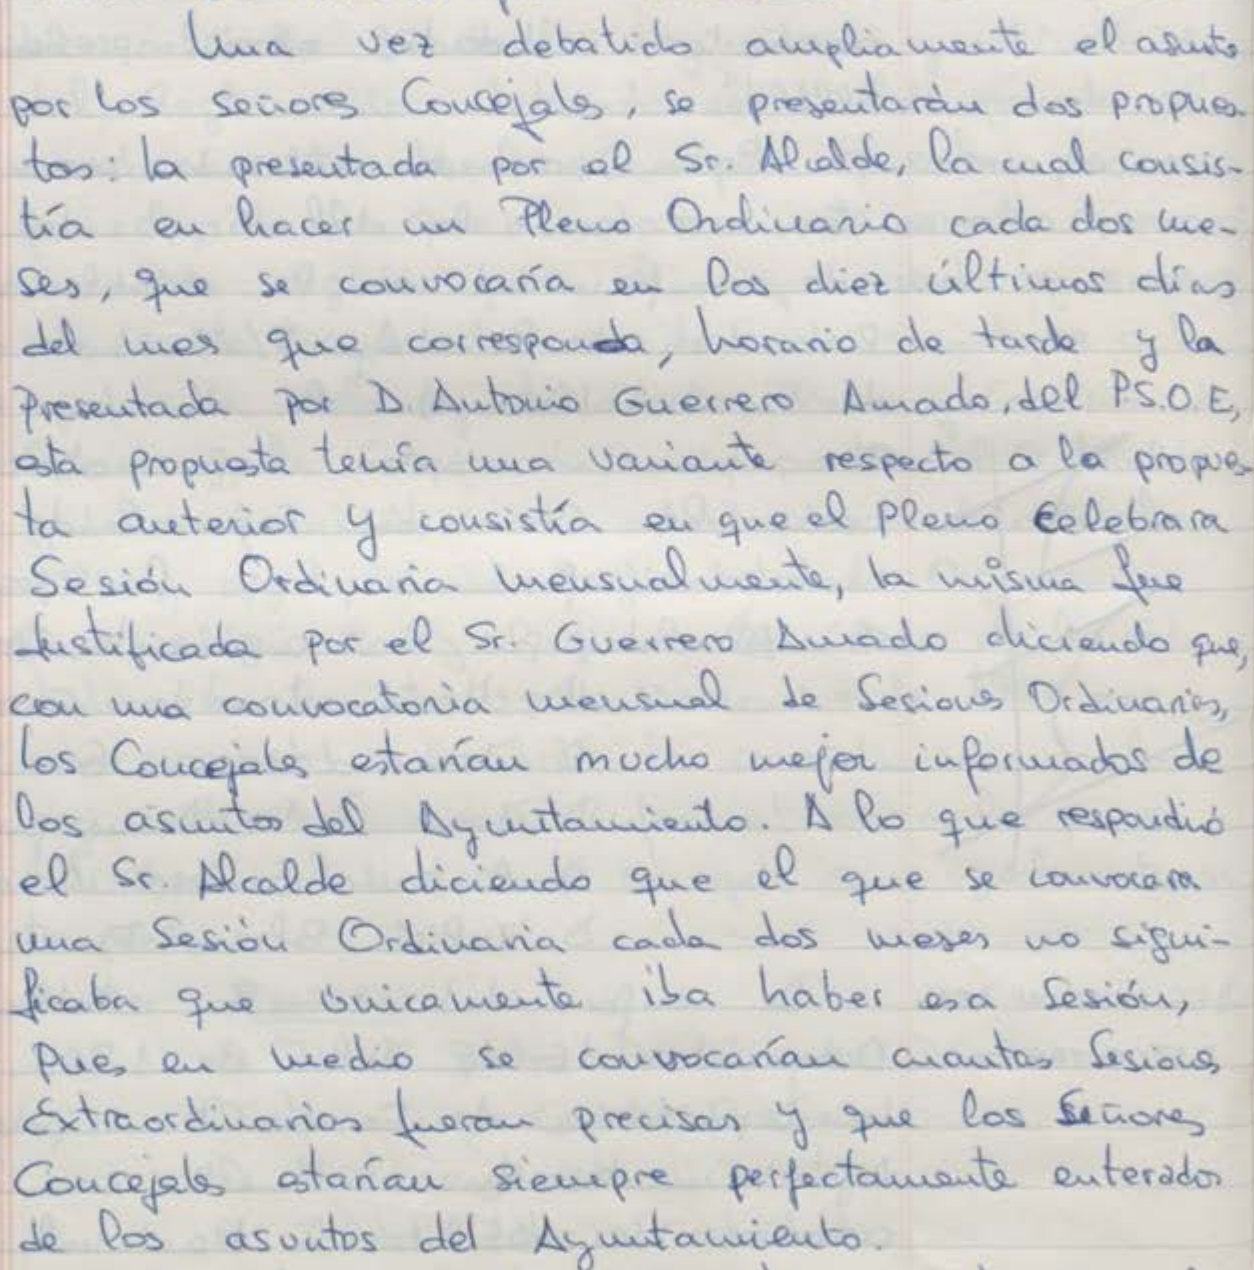 Una vez debatido ampliamente el asunto
por los señores Concejales, se presentarán dos propues
tas: la presentada por el Sr. Alcalde, la cual consis-
tía en hacer un Pleno Ordinario cada dos me-
ses, que se convocaría en los diez últimos días
del mes que corresponda, horario de tarde y la
presentada por D. Antonio Guerrero Amado, del P.S.O.E,
esta propuesta tenía una variante respecto a la propues
ta anterior y consistía en que el Pleno celebrara
Sesión Ordinaria mensualmente, la misma fue
Justificada por el Sr. Guerrero Amado diciendo que,
con una convocatoria mensual de Sesiones Ordinarias,
los Concejales estarían mucho mejor informados de
los asuntos del Ayuntamiento. A lo que respondió
el Sr. Alcalde diciendo que el que se convocara
una Sesión Ordinaria cada dos meses no signi-
ficaba que únicamente iba haber esa Sesión,
pues en medio se convocarían cuantas Sesiones
Extraordinarias fueran precisas y que los Señores
Concejales estarían siempre perfectamente enterados
de los asuntos del Ayuntamiento.